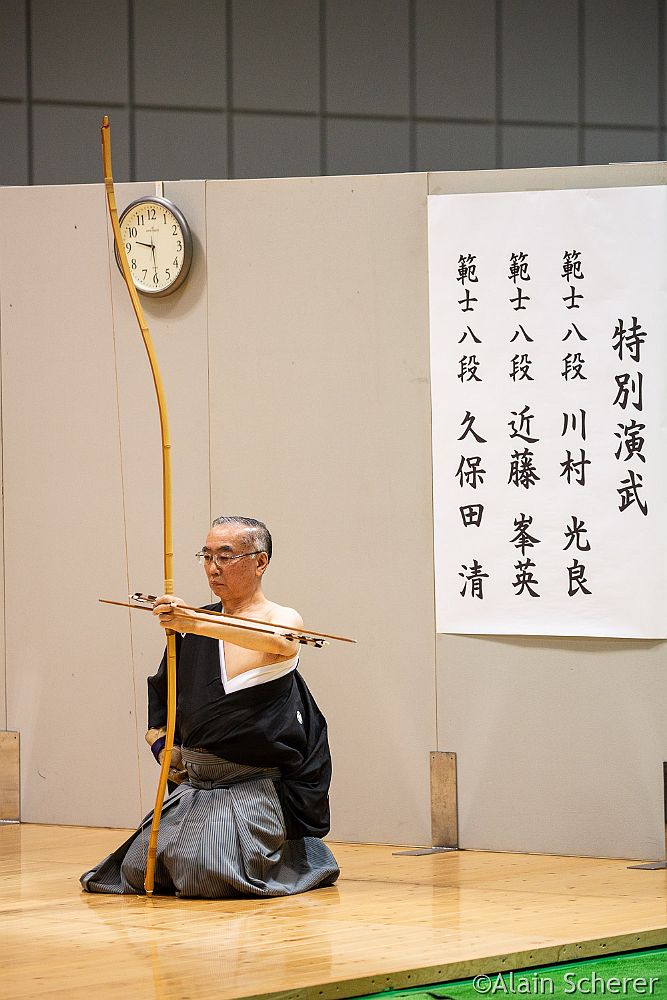 特別演武
範士八段 川村 光良
範士八段 近藤 峯英
範士八段 久保田 清
12
1
2
3
4
5
6
7
8
9
10
11
©Alain Scherer